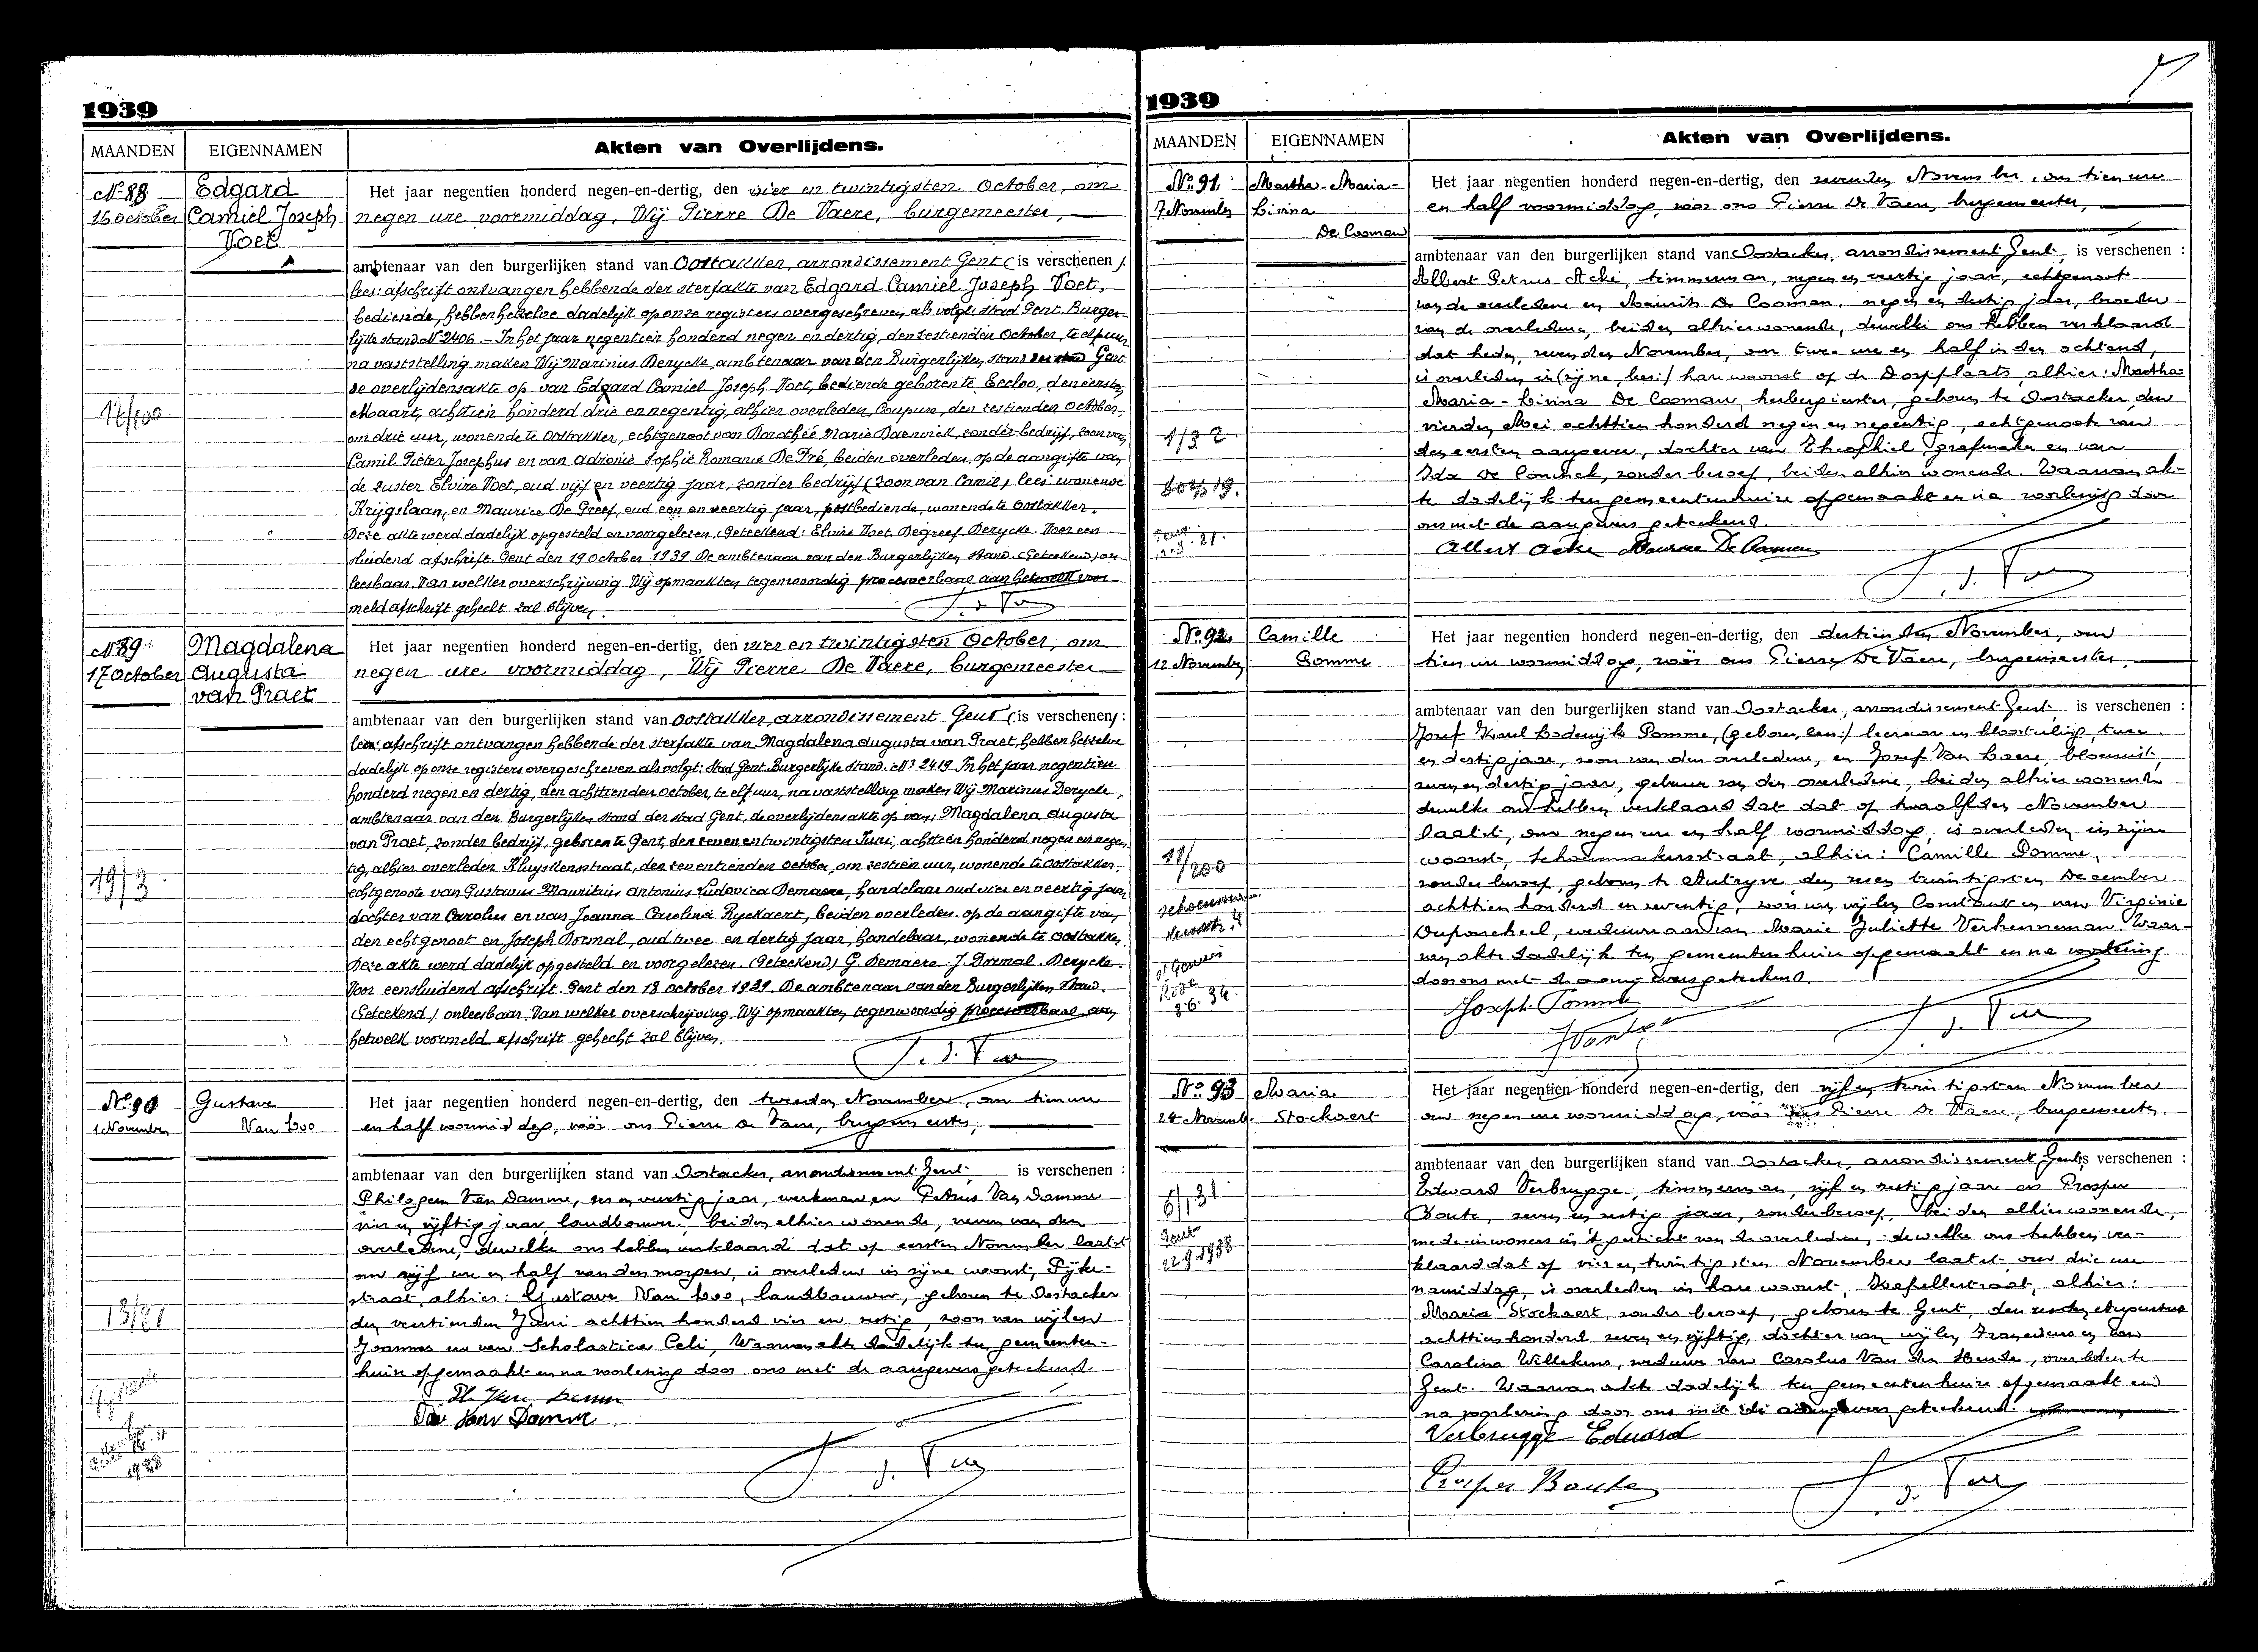 1939
MAANDEN EIGENNAMEN Akten van Overlijdens.
No 88
16 october
Edgard
Camiel Joseph
Voet
Het jaar negentien honderd negen-en-dertig, den vier en twintigsten October, om
negen ure voormiddag, Wij Pierre De Vaere, burgemeester,
ambtenaar van den burgerlijken stand van Oostakker, arrondissement Gent (is verschenen)
lees: afschrift ontvangen hebbende der sterfakte van Edgard Camiel Joseph Voet,
bediende, hebben hetzelve dadelijk op onze registers overgeschreven als volgt: Stad Gent. Burger-
lijke stand. No 2406. - In het jaar negentien honderd negen en dertig, den zestienden October, te elf uur,
na vaststelling maken Wij Marinus Derycke, ambtenaar van den Burgerlijken stand Gent
de overlijdensakte op van Edgard Camiel Joseph Voet, bediende geboren te Eecloo, den eersten
Maart, achttien honderd drie en negentig, alhier overleden, Coupure, den zestienden October,
om drie uur, wonende te Oostakker, echtgenoot van Dorothée Marie Daeninck, zonder bedrijf, zoon van
Camil Pieter Josephus en van Adronie Sophie Romanie De Pré, beiden overleden, op de aangifte van
de zuster Elvire Voet, oud vijf en veertig jaar, zonder bedrijf (zoon van Camil) lees: wonende
Krijgslaan, en Maurice De Greef, oud een en veertig jaar, postbediende, wonende te Oostakker.
Deze akte werd dadelijk opgesteld en voorgelezen. (Geteekend): Elvire Voet. Degreef. Derycke. Voor een-
sluidend afschrift. Gent den 19 October 1939. De ambtenaar van den Burgerlijken Stand. (Geteekend) on-
leesbaar. Van welker overschrijving Wij opmaakten tegenwoordig procesverbaal aan hetwelk voor-
meld afschrift gehecht zal blijven.
17/100
No 89
17 October
Magdalena
Augusta
van Praet
Het jaar negentien honderd negen-en-dertig, den vier en twintigsten October, om
negen ure voormiddag, Wij Pierre De Vaere, burgemeester
ambtenaar van den burgerlijken stand van Oostakker, arrondissement Gent (is verschenen):
lees: afschrift ontvangen hebbende der sterfakte van Magdalena Augusta van Praet, hebben hetzelve
dadelijk op onze registers overgeschreven als volgt: Stad Gent. Burgerlijke Stand. No 2419. In het jaar negentien
honderd negen en dertig, den achttienden october, te elf uur, na vaststelling maken Wij Marinus Derycke,
ambtenaar van den Burgerlijken Stand der stad Gent, de overlijdensakte op van: Magdalena Augusta
van Praet, zonder bedrijf, geboren te Gent, den zeven en twintigsten Juni, achttien honderd negen en negen-
tig, alhier overleden Kluyskensstraat, den zeventienden october, om zestien uur, wonende te Oostakker,
echtgenoote van Gustavus Mauritius Antonius Ludovica Demaere, handelaar oud vier en veertig jaar,
dochter van Carolus en van Joanna Carolina Ryckaert, beiden overleden. op de aangifte van
den echtgenoot en Joseph Dormal, oud twee en dertig jaar, handelaar, wonende te Oostakker.
Deze akte werd dadelijk opgesteld en voorgelezen. (Geteekend) G. Demaere. J. Dormal. Derycke.
Voor eensluidend afschrift. Gent den 18 october 1939. De ambtenaar van den Burgerlijken Stand.
(Geteekend) onleesbaar. Van welker overschrijving, Wij opmaakten tegenwoordig procesverbaal aan
hetwelk voormeld afschrift gehecht zal blijven.
19/3
No 90
1 November
Gustave
Van Loo
Het jaar negentien honderd negen-en-dertig, den tweeden November, om tien ure
en half voormiddag, vóór ons Pierre De Vaere, burgemeester,
ambtenaar van den burgerlijken stand van Oostacker, arrondissement Gent, is verschenen :
Philogeen Van Damme, zes en veertig jaar, werkman en Petrus Van Damme
vier en vijftig jaar, landbouwer. beiden alhier wonende, neven van den
overledene, dewelke ons hebben verklaard dat op eersten November laatst
om vijf ure en half van den morgen, is overleden in zijne woonst, Pijke-
straat, alhier: Gustave Van Loo, landbouwer, geboren te Oostacker
den veertienden Juni achttien honderd vier en zestig, zoon van wijlen
Joannes en van Scholastica Celi, Waarvan akte dadelijk ten gemeenten-
huize opgemaakt en na voorlezing door ons met de aangevers geteekend.
Van Damme
13/21
1939
MAANDEN EIGENNAMEN Akten van Overlijdens.
No 91
7 November
Martha-Maria-
Livina
De Cooman
Het jaar negentien honderd negen-en-dertig, den zevenden November, om tien ure
en half voormiddag, vóór ons Pierre De Vaere, burgemeester,
ambtenaar van den burgerlijken stand van Oostacker, arrondissement Gent, is verschenen :
Albert Petrus Acke, timmerman, negen en veertig jaar, echtgenoot
van de overledene en Maurits De Cooman, negen en dertig jaar, broeder
van de overledene, beiden alhier wonende, dewelke ons hebben verklaard
dat heden, zevenden November, om twee ure en half in den ochtend,
is overleden in (zijne, lees:) hare woonst op de Dorpplaats, alhier: Martha
Maria-Livina De Cooman, herbergierster, geboren te Oostacker den
vierden Mei achttien honderd negen en negentig, echtgenoote van
den eersten aangever, dochter van Theophiel, grafmaker en van
Ida De Coninck, zonder beroep, beiden alhier wonende. Waarvan ak-
te dadelijk ten gemeentenhuize opgemaakt en na voorlezing door
ons met de aangevers geteekend.
Albert Acke Maurice De Cooman
1/32
No 92
12 November
Camille
Pomme
Het jaar negentien honderd negen-en-dertig, den dertienden November, om
tien ure voormiddag, vóór ons Pierre De Vaere, burgemeester,
ambtenaar van den burgerlijken stand van Oostacker, arrondissement Gent, is verschenen :
Josef Karel Lodewijk Pomme, (gebour, lees:) leeraar en kloosterling, twee
en dertig jaar, zoon van den overledene, en Jozef Van Laere, bloemist,
zeven en dertig jaar, gebuur van den overledene, beiden alhier wonende
dewelke ons hebben verklaard dat dat op twaalfden November
laatst, om negen ure en half voormiddag, is overleden in zijne
woonst, Schoenmakersstraat, alhier: Camille Pomme,
zonder beroep, geboren te Autryve den zeven twintigsten December
achttien honderd en zeventig, zoon van wijlen Constant en van Virginie
Duponcheel, weduwnaar van Marie Juliette Verhenneman. Waar-
van akte dadelijk ten gemeentenhuize opgemaakt en na voorlezing
door ons met de aangevers geteekend.
Joseph Pomme
11/200
No 93
24 November
Maria
Stockaert
Het jaar negentien honderd negen-en-dertig, den vijf en twintigsten November
om negen ure voormiddag, vóór ons Pierre De Vaere, burgemeester
ambtenaar van den burgerlijken stand van Oostacker, arrondissement Gent, is verschenen :
Edward Verbrugge, timmerman, vijf en zestig jaar en Prosper
Boute, zeven en zestig jaar, zonder beroep, beiden alhier wonende,
mede-inwoners in 't gesticht van de overledene, dewelke ons hebben ver-
klaard dat op vier en twintigsten November laatst om drie ure
namiddag, is overleden in hare woonst, Kapellestraat, alhier:
Maria Stockaert, zonder beroep, geboren te Gent, den zesden Augustus
achttien honderd zeven en vijftig, dochter van wijlen Franciscus en van
Carolina Willekens, weduwe van Carolus Van den Hende, overleden te
Gent. Waarvan akte dadelijk ten gemeentenhuize opgemaakt en
na voorlezing door ons met de aangevers geteekend.
Verbrugge Eduard
Prosper Boute
6/131
Gent
22.9.1938